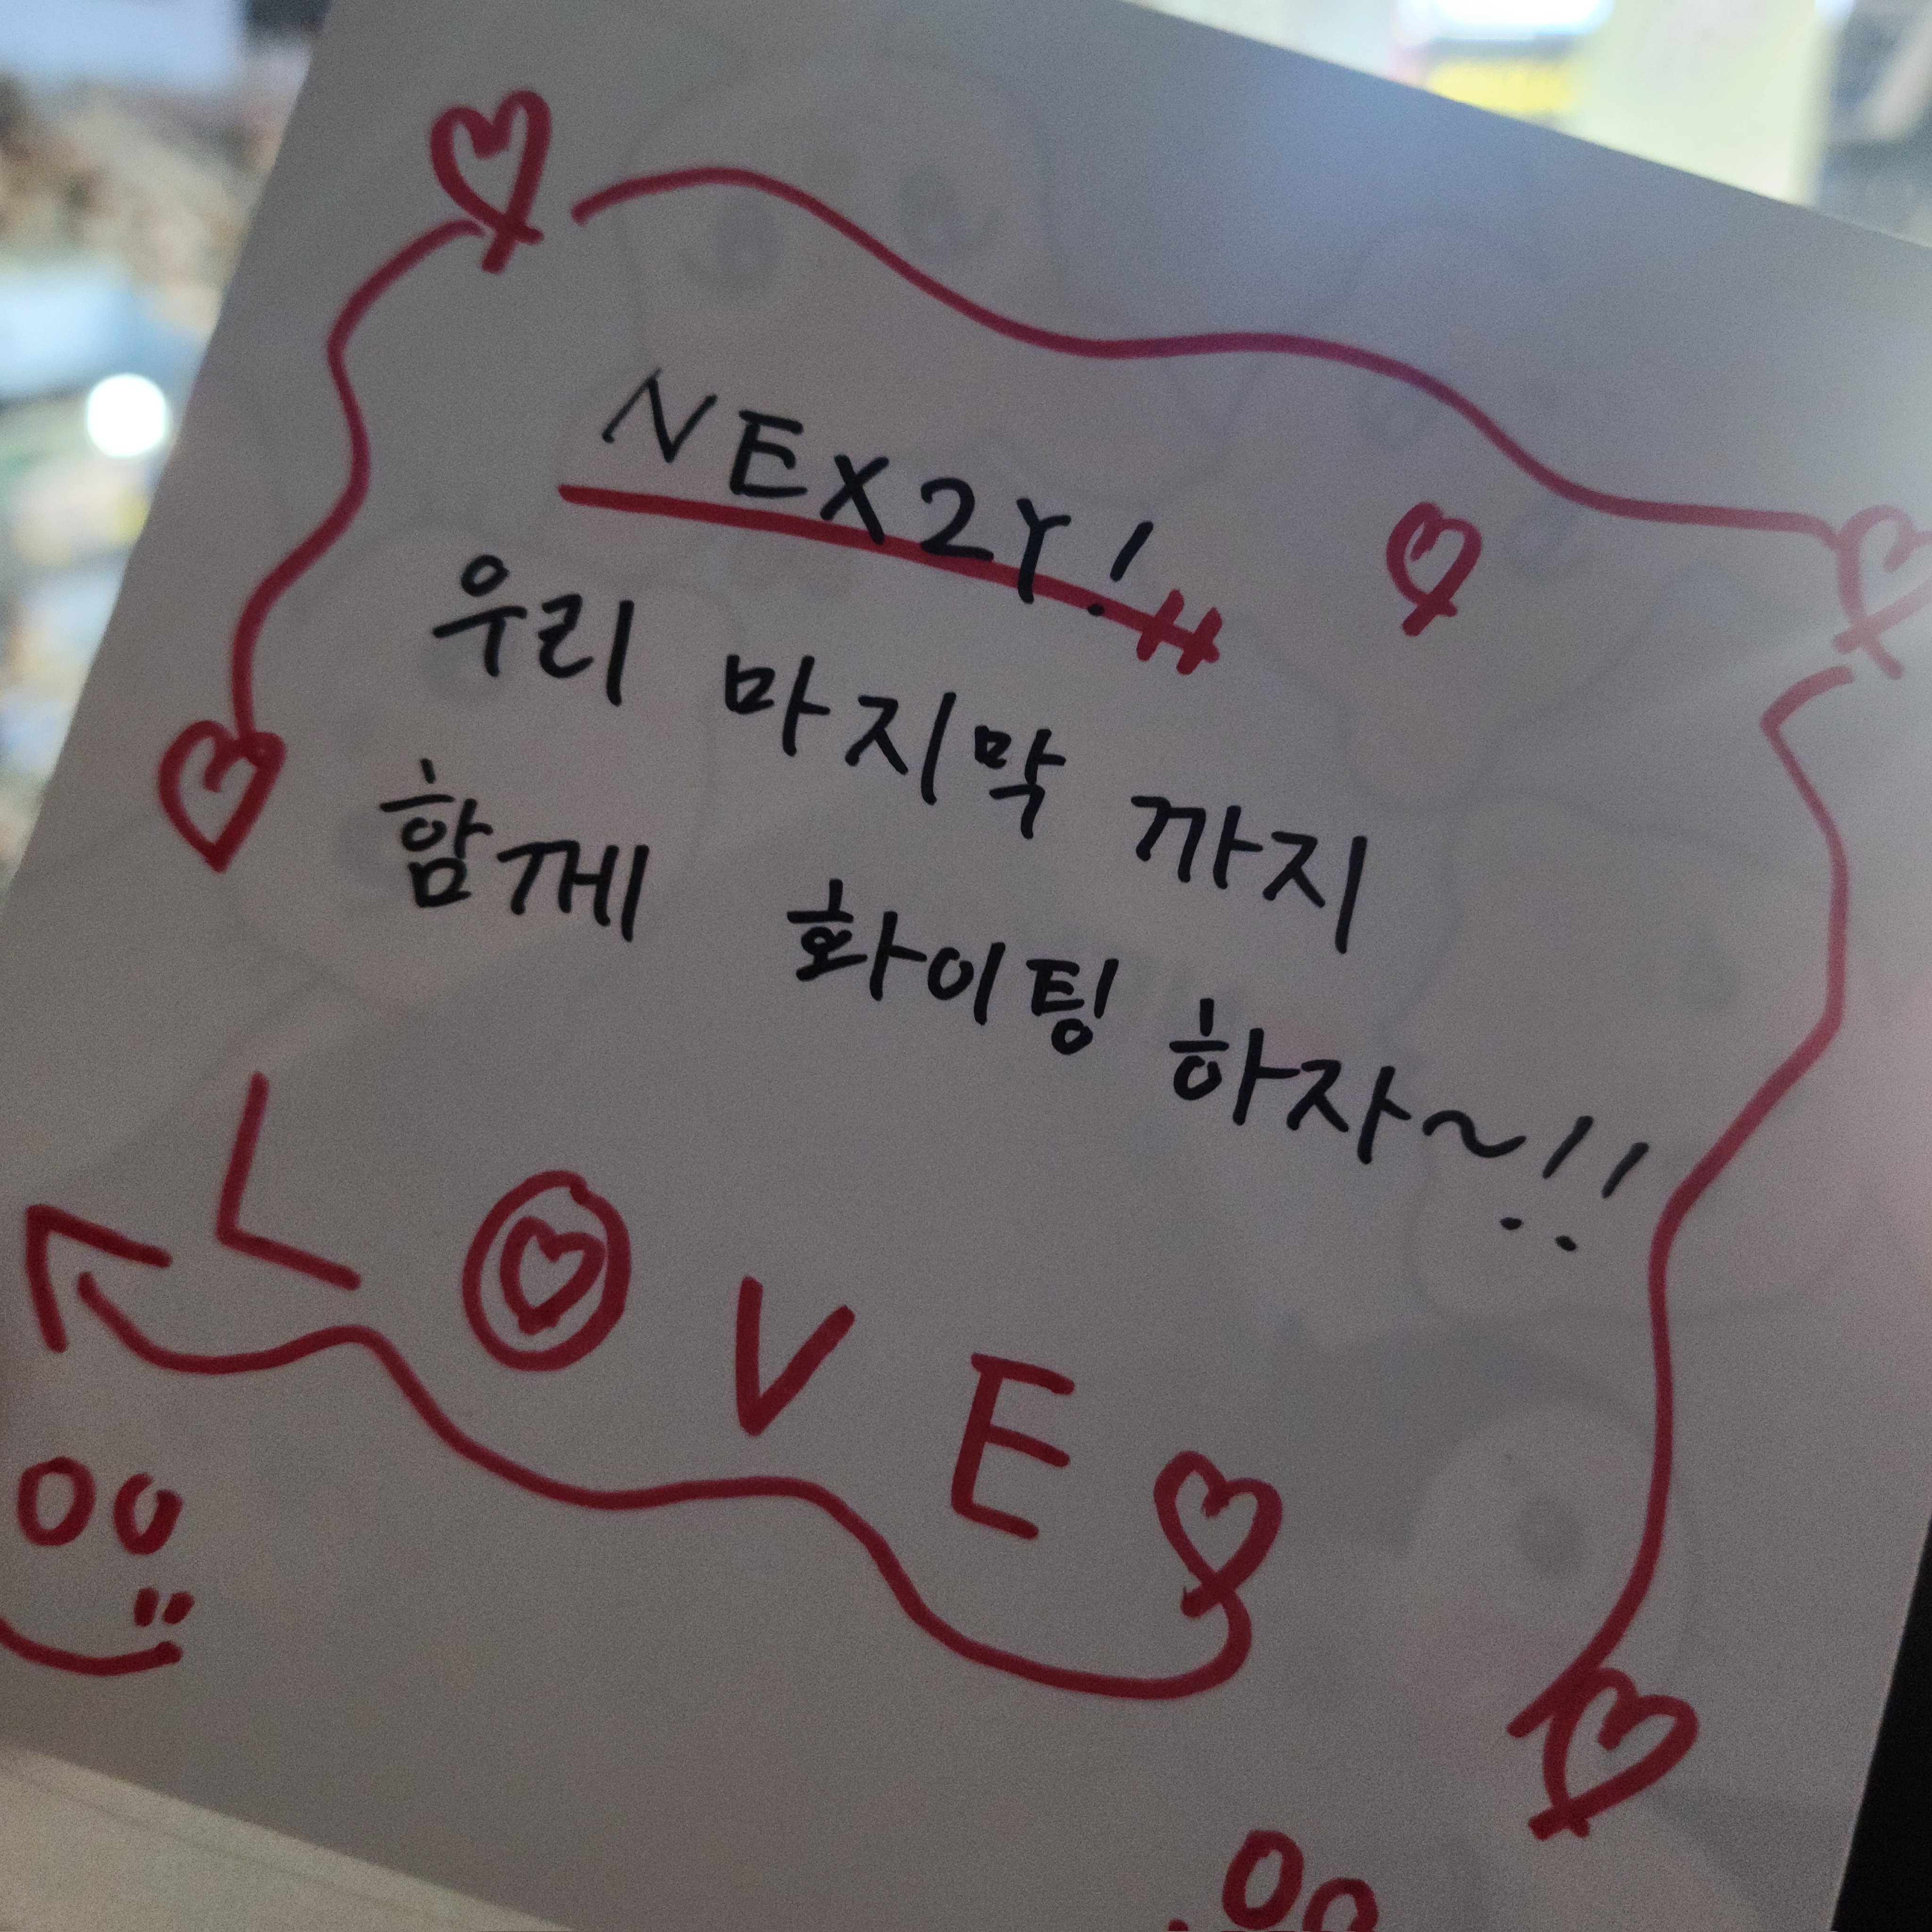 NEX2Y!
우리 마지막 까지
함께 화이팅 하자~!!
LOVE